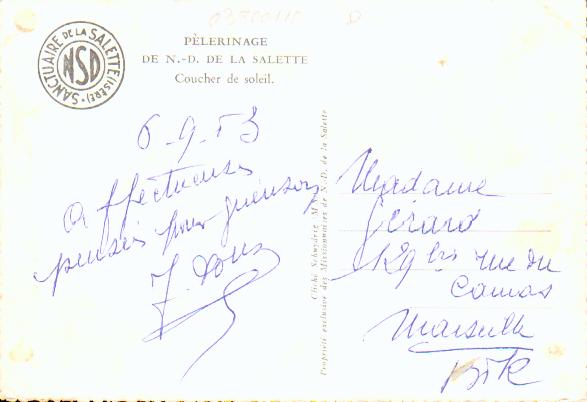 SANCTUAIRE DE LA SALETTE (ISÈRE)
NSD
PÈLERINAGE
DE N.-D. DE LA SALETTE
Coucher de soleil.
6-9-53
Affectueuses
pensées pour guérison
Madame
Gérard
129 bis rue du
Camas
Marseille
Cliché Schnydrig
Propriété exclusive des Missionnaires de N.-D. de la Salette